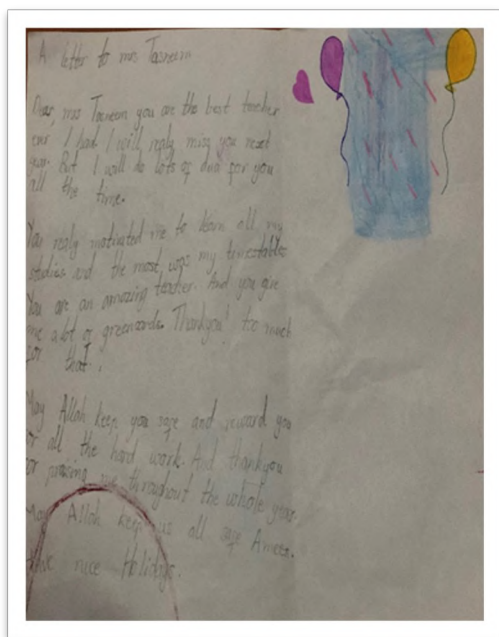 A letter to mrs Tasneem
Dear, mrs Tasneem you are the best teacher
ever I had. I will realy miss you next
year. But I will do lots of dua for you
all the time.
You realy motivated me to learn all my
studies and the most was my timestables
You are an amazing teacher. And you give
me alot of greencards. Thankyou! too much
for that.
May Allah keep you safe and reward you
for all the hard work. And thankyou
for praising me throughout the whole year.
May Allah keep us all safe Ameen.
Have nice Holidays.